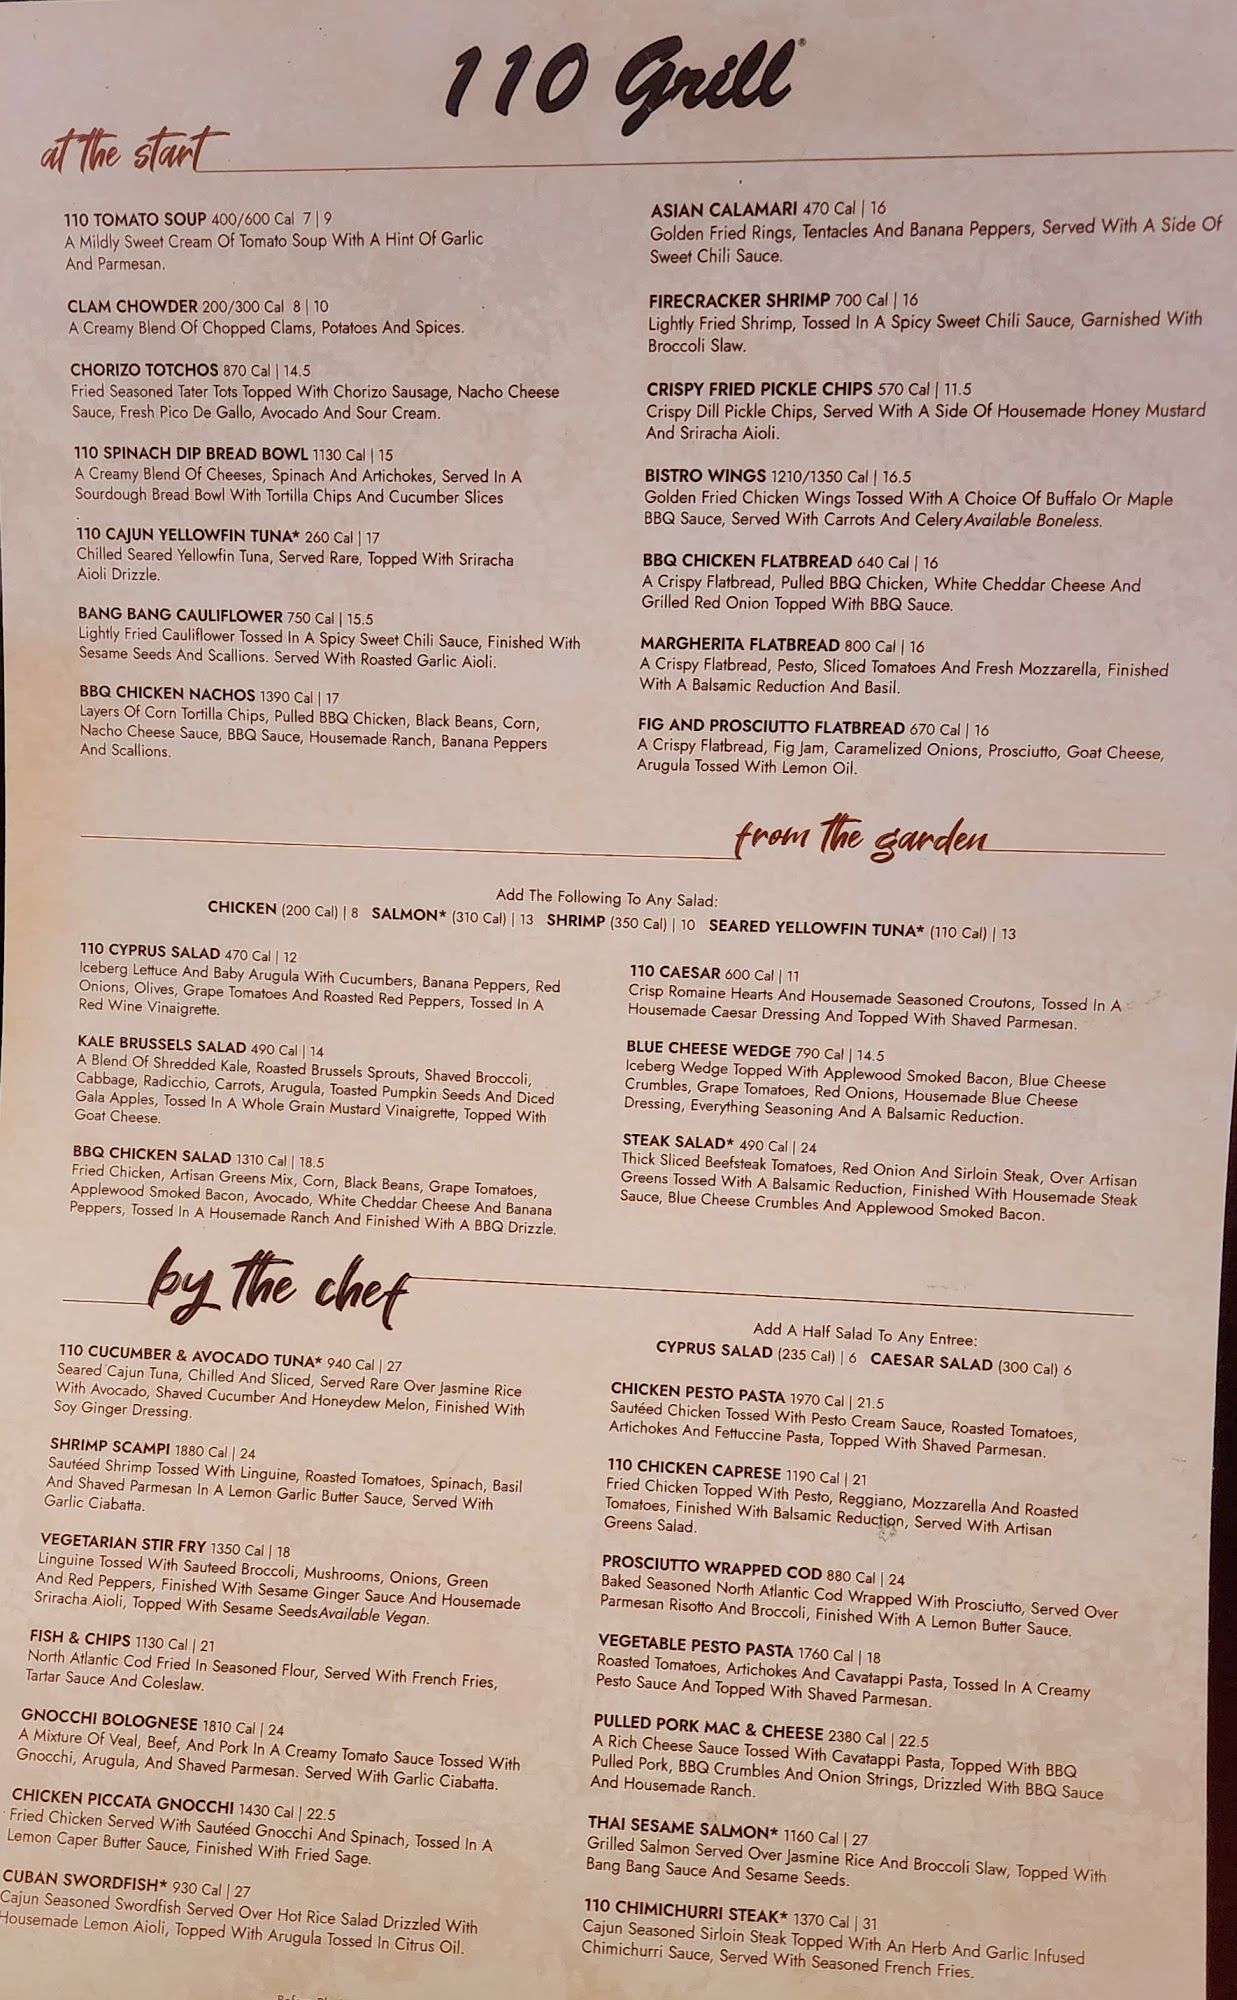 110 Grill®
at the start
110 TOMATO SOUP 400/600 Cal 7 | 9
A Mildly Sweet Cream Of Tomato Soup With A Hint Of Garlic
And Parmesan.
CLAM CHOWDER 200/300 Cal 8 | 10
A Creamy Blend Of Chopped Clams, Potatoes And Spices.
CHORIZO TOTCHOS 870 Cal | 14.5
Fried Seasoned Tater Tots Topped With Chorizo Sausage, Nacho Cheese
Sauce, Fresh Pico De Gallo, Avocado And Sour Cream.
110 SPINACH DIP BREAD BOWL 1130 Cal | 15
A Creamy Blend Of Cheeses, Spinach And Artichokes, Served In A
Sourdough Bread Bowl With Tortilla Chips And Cucumber Slices
110 CAJUN YELLOWFIN TUNA* 260 Cal | 17
Chilled Seared Yellowfin Tuna, Served Rare, Topped With Sriracha
Aioli Drizzle.
BANG BANG CAULIFLOWER 750 Cal | 15.5
Lightly Fried Cauliflower Tossed In A Spicy Sweet Chili Sauce, Finished With
Sesame Seeds And Scallions. Served With Roasted Garlic Aioli.
BBQ CHICKEN NACHOS 1390 Cal | 17
Layers Of Corn Tortilla Chips, Pulled BBQ Chicken, Black Beans, Corn,
Nacho Cheese Sauce, BBQ Sauce, Housemade Ranch, Banana Peppers
And Scallions.
ASIAN CALAMARI 470 Cal | 16
Golden Fried Rings, Tentacles And Banana Peppers, Served With A Side Of
Sweet Chili Sauce.
FIRECRACKER SHRIMP 700 Cal | 16
Lightly Fried Shrimp, Tossed In A Spicy Sweet Chili Sauce, Garnished With
Broccoli Slaw.
CRISPY FRIED PICKLE CHIPS 570 Cal | 11.5
Crispy Dill Pickle Chips, Served With A Side Of Housemade Honey Mustard
And Sriracha Aioli.
BISTRO WINGS 1210/1350 Cal | 16.5
Golden Fried Chicken Wings Tossed With A Choice Of Buffalo Or Maple
BBQ Sauce, Served With Carrots And CeleryAvailable Boneless.
BBQ CHICKEN FLATBREAD 640 Cal | 16
A Crispy Flatbread, Pulled BBQ Chicken, White Cheddar Cheese And
Grilled Red Onion Topped With BBQ Sauce.
MARGHERITA FLATBREAD 800 Cal | 16
A Crispy Flatbread, Pesto, Sliced Tomatoes And Fresh Mozzarella, Finished
With A Balsamic Reduction And Basil.
FIG AND PROSCIUTTO FLATBREAD 670 Cal | 16
A Crispy Flatbread, Fig Jam, Caramelized Onions, Prosciutto, Goat Cheese,
Arugula Tossed With Lemon Oil.
from the garden
Add The Following To Any Salad:
CHICKEN (200 Cal) | 8 SALMON* (310 Cal) | 13 SHRIMP (350 Cal) | 10 SEARED YELLOWFIN TUNA* (110 Cal) | 13
110 CYPRUS SALAD 470 Cal | 12
Iceberg Lettuce And Baby Arugula With Cucumbers, Banana Peppers, Red
Onions, Olives, Grape Tomatoes And Roasted Red Peppers, Tossed In A
Red Wine Vinaigrette.
KALE BRUSSELS SALAD 490 Cal | 14
A Blend Of Shredded Kale, Roasted Brussels Sprouts, Shaved Broccoli,
Cabbage, Radicchio, Carrots, Arugula, Toasted Pumpkin Seeds And Diced
Gala Apples, Tossed In A Whole Grain Mustard Vinaigrette, Topped With
Goat Cheese.
BBQ CHICKEN SALAD 1310 Cal | 18.5
Fried Chicken, Artisan Greens Mix, Corn, Black Beans, Grape Tomatoes,
Applewood Smoked Bacon, Avocado, White Cheddar Cheese And Banana
Peppers, Tossed In A Housemade Ranch And Finished With A BBQ Drizzle.
110 CAESAR 600 Cal | 11
Crisp Romaine Hearts And Housemade Seasoned Croutons, Tossed In A
Housemade Caesar Dressing And Topped With Shaved Parmesan.
BLUE CHEESE WEDGE 790 Cal | 14.5
Iceberg Wedge Topped With Applewood Smoked Bacon, Blue Cheese
Crumbles, Grape Tomatoes, Red Onions, Housemade Blue Cheese
Dressing, Everything Seasoning And A Balsamic Reduction.
STEAK SALAD* 490 Cal | 24
Thick Sliced Beefsteak Tomatoes, Red Onion And Sirloin Steak, Over Artisan
Greens Tossed With A Balsamic Reduction, Finished With Housemade Steak
Sauce, Blue Cheese Crumbles And Applewood Smoked Bacon.
by the chef
110 CUCUMBER & AVOCADO TUNA* 940 Cal | 27
Seared Cajun Tuna, Chilled And Sliced, Served Rare Over Jasmine Rice
With Avocado, Shaved Cucumber And Honeydew Melon, Finished With
Soy Ginger Dressing.
SHRIMP SCAMPI 1880 Cal | 24
Sautéed Shrimp Tossed With Linguine, Roasted Tomatoes, Spinach, Basil
And Shaved Parmesan In A Lemon Garlic Butter Sauce, Served With
Garlic Ciabatta.
VEGETARIAN STIR FRY 1350 Cal | 18
Linguine Tossed With Sauteed Broccoli, Mushrooms, Onions, Green
And Red Peppers, Finished With Sesame Ginger Sauce And Housemade
Sriracha Aioli, Topped With Sesame SeedsAvailable Vegan.
FISH & CHIPS 1130 Cal | 21
North Atlantic Cod Fried In Seasoned Flour, Served With French Fries,
Tartar Sauce And Coleslaw.
GNOCCHI BOLOGNESE 1810 Cal | 24
A Mixture Of Veal, Beef, And Pork In A Creamy Tomato Sauce Tossed With
Gnocchi, Arugula, And Shaved Parmesan. Served With Garlic Ciabatta.
CHICKEN PICCATA GNOCCHI 1430 Cal | 22.5
Fried Chicken Served With Sautéed Gnocchi And Spinach, Tossed In A
Lemon Caper Butter Sauce, Finished With Fried Sage.
CUBAN SWORDFISH* 930 Cal | 27
Cajun Seasoned Swordfish Served Over Hot Rice Salad Drizzled With
Housemade Lemon Aioli, Topped With Arugula Tossed In Citrus Oil.
Add A Half Salad To Any Entree:
CYPRUS SALAD (235 Cal) | 6 CAESAR SALAD (300 Cal) 6
CHICKEN PESTO PASTA 1970 Cal | 21.5
Sautéed Chicken Tossed With Pesto Cream Sauce, Roasted Tomatoes,
Artichokes And Fettuccine Pasta, Topped With Shaved Parmesan.
110 CHICKEN CAPRESE 1190 Cal | 21
Fried Chicken Topped With Pesto, Reggiano, Mozzarella And Roasted
Tomatoes, Finished With Balsamic Reduction, Served With Artisan
Greens Salad.
PROSCIUTTO WRAPPED COD 880 Cal | 24
Baked Seasoned North Atlantic Cod Wrapped With Prosciutto, Served Over
Parmesan Risotto And Broccoli, Finished With A Lemon Butter Sauce.
VEGETABLE PESTO PASTA 1760 Cal | 18
Roasted Tomatoes, Artichokes And Cavatappi Pasta, Tossed In A Creamy
Pesto Sauce And Topped With Shaved Parmesan.
PULLED PORK MAC & CHEESE 2380 Cal | 22.5
A Rich Cheese Sauce Tossed With Cavatappi Pasta, Topped With BBQ
Pulled Pork, BBQ Crumbles And Onion Strings, Drizzled With BBQ Sauce
And Housemade Ranch.
THAI SESAME SALMON* 1160 Cal | 27
Grilled Salmon Served Over Jasmine Rice And Broccoli Slaw, Topped With
Bang Bang Sauce And Sesame Seeds.
110 CHIMICHURRI STEAK* 1370 Cal | 31
Cajun Seasoned Sirloin Steak Topped With An Herb And Garlic Infused
Chimichurri Sauce, Served With Seasoned French Fries.